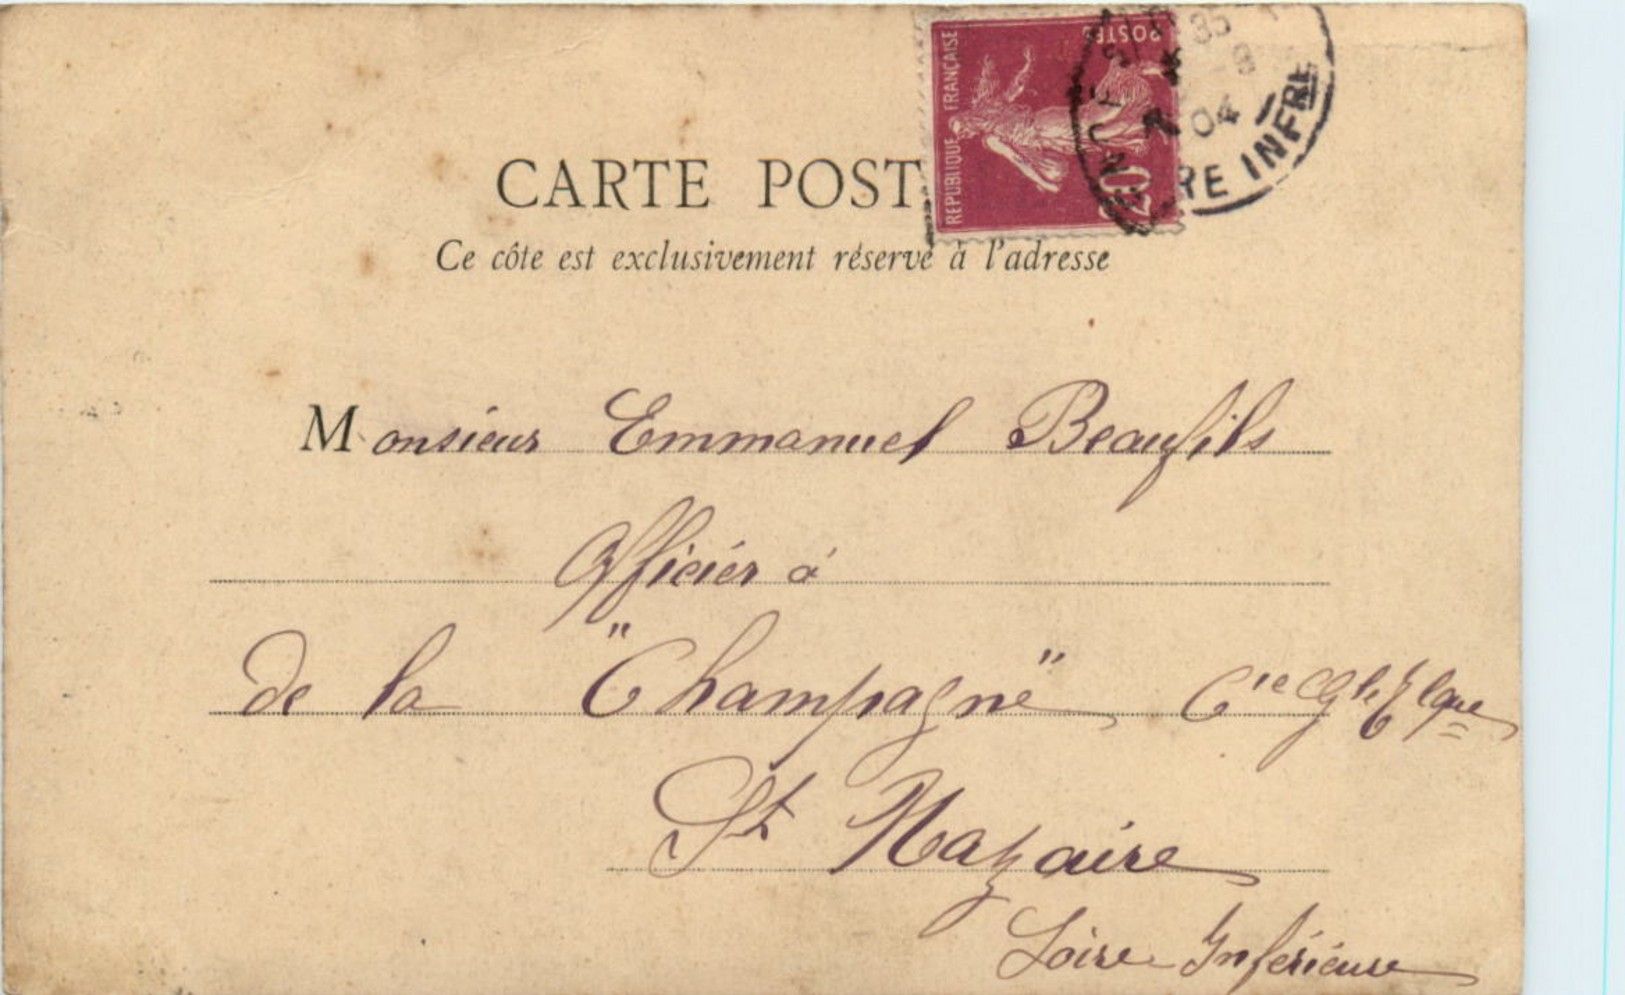 POSTES
REPUBLIQUE FRANÇAISE
20
04
RE INFRE
CARTE POST
Ce côte est exclusivement réservé à l'adresse
Monsieur Emmanuel Beaufils
Officier à
de la "Champagne" Cie Gle Tlque
St Nazaire
Loire Inférieure